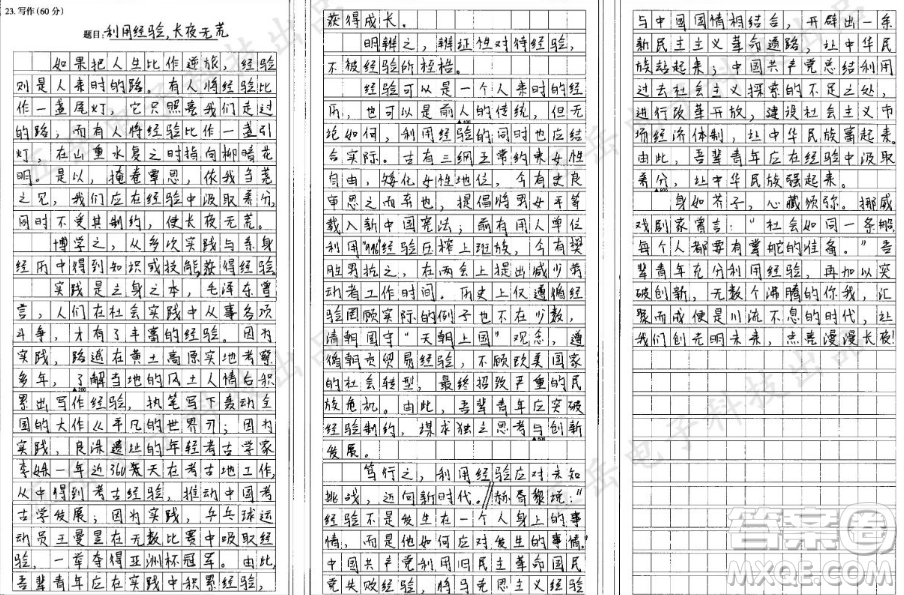 23. 写作(60分)
题目:利用经验,长夜无荒
如果把人生比作逆旅,经验
则是人来时的路。有人将经验比
作一盏尾灯,它只照亮我们走过
的路,而有人将经验比作一盏引
灯,在山重水复之时指向柳暗花
明。是以,掩卷覃思,依我刍荛
之见,我们应在经验中汲取养分,
同时不受其制约,使长夜无荒。
博学之,从多次实践与亲身
经历中得到知识或技能,获得经验
实践是立身之本,毛泽东曾
言,人们在社会实践中从事各项
斗争,才有了丰富的经验。因为
实践,路遥在黄土高原实地考察
多年,了解当地的风土人情后积
累出写作经验,执笔写下轰动全
国的大作《平凡的世界》;因为
实践,良渚遗址的年轻考古学家
一年近360天在考古地工作,
从中得到考古经验,推动中国考
古学发展;因为实践,乒乓球运
动员王曼昱在无数比赛中吸取经
验,一举夺得亚洲杯冠军。由此,
吾辈青年应在实践中积累经验,
获得成长。
明辨之,辩证性对待经验,
不被经验所桎梏。
经验可以是一个人来时的经
历,也可以是前人的传统,但无
论如何,利用经验的同时也应结
合实际。古有三纲五常约束女性
自由,矮化女性地位,今有史良
审思之而系也,提倡将男女平等
载入新中国宪法;前有用人单位
利用"经验压榨上班族,今有樊
胜男抗之,在两会上提出减少劳
动者工作时间。历史上仅遵循经
验罔顾实际的例子也不在少数,
清朝固守"天朝上国"观念,遵
循朝贡贸易经验,不顾欧美国家
的社会转型,最终招致严重的民
族危机。由此,吾辈青年应突破
经验制约,谋求独立思考与创新
发展。
笃行之,利用经验应对未知
挑战,迈向新时代。赫胥黎说:"
经验不是发生在一个人身上的事
情,而是他如何应对发生的事情。"
中国共产党利用旧民主主义革命
失败经验,将马克思主义经验
与中国国情相结合,开辟出一条
新民主主义革命道路,让中华民
族站起来;中国共产党总结利用
过去社会主义探索的不足之处,
进行改革开放,建设社会主义市
场经济体制,让中华民族富起来。
由此,吾辈青年应在经验中汲取
养分,让中华民族强起来。
身如芥子,心藏须弥。挪威
戏剧家寓言:"社会如同一条船
每个人都要有掌舵的准备。"吾
辈青年充分利用经验,再加以突
破创新,无数个沸腾的你我,汇
聚而成便是川流不息的时代,让
我们创光明未来,点亮漫漫长夜!
答案圈
MXQE.COM